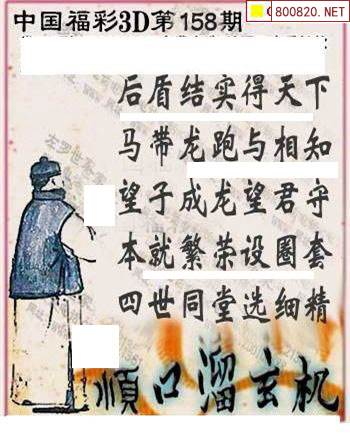 中国福彩3D第158期
800820.NET
后盾结实得天下
马带龙跑与相知
望子成龙望君守
本就繁荣设圈套
四世同堂选细精
顺口溜玄机